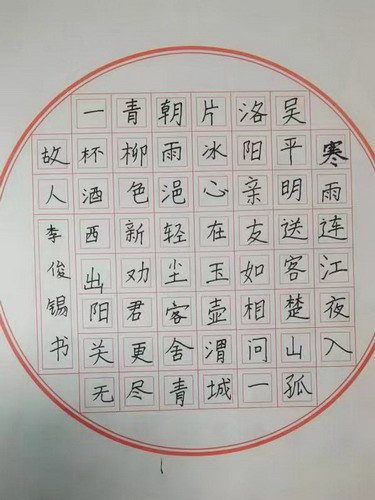 寒雨连江夜入
吴平明送客楚山孤
洛阳亲友如相问一
片冰心在玉壶渭城
朝雨浥轻尘客舍青
青柳色新劝君更尽
一杯酒西出阳关无
故人李俊锡书